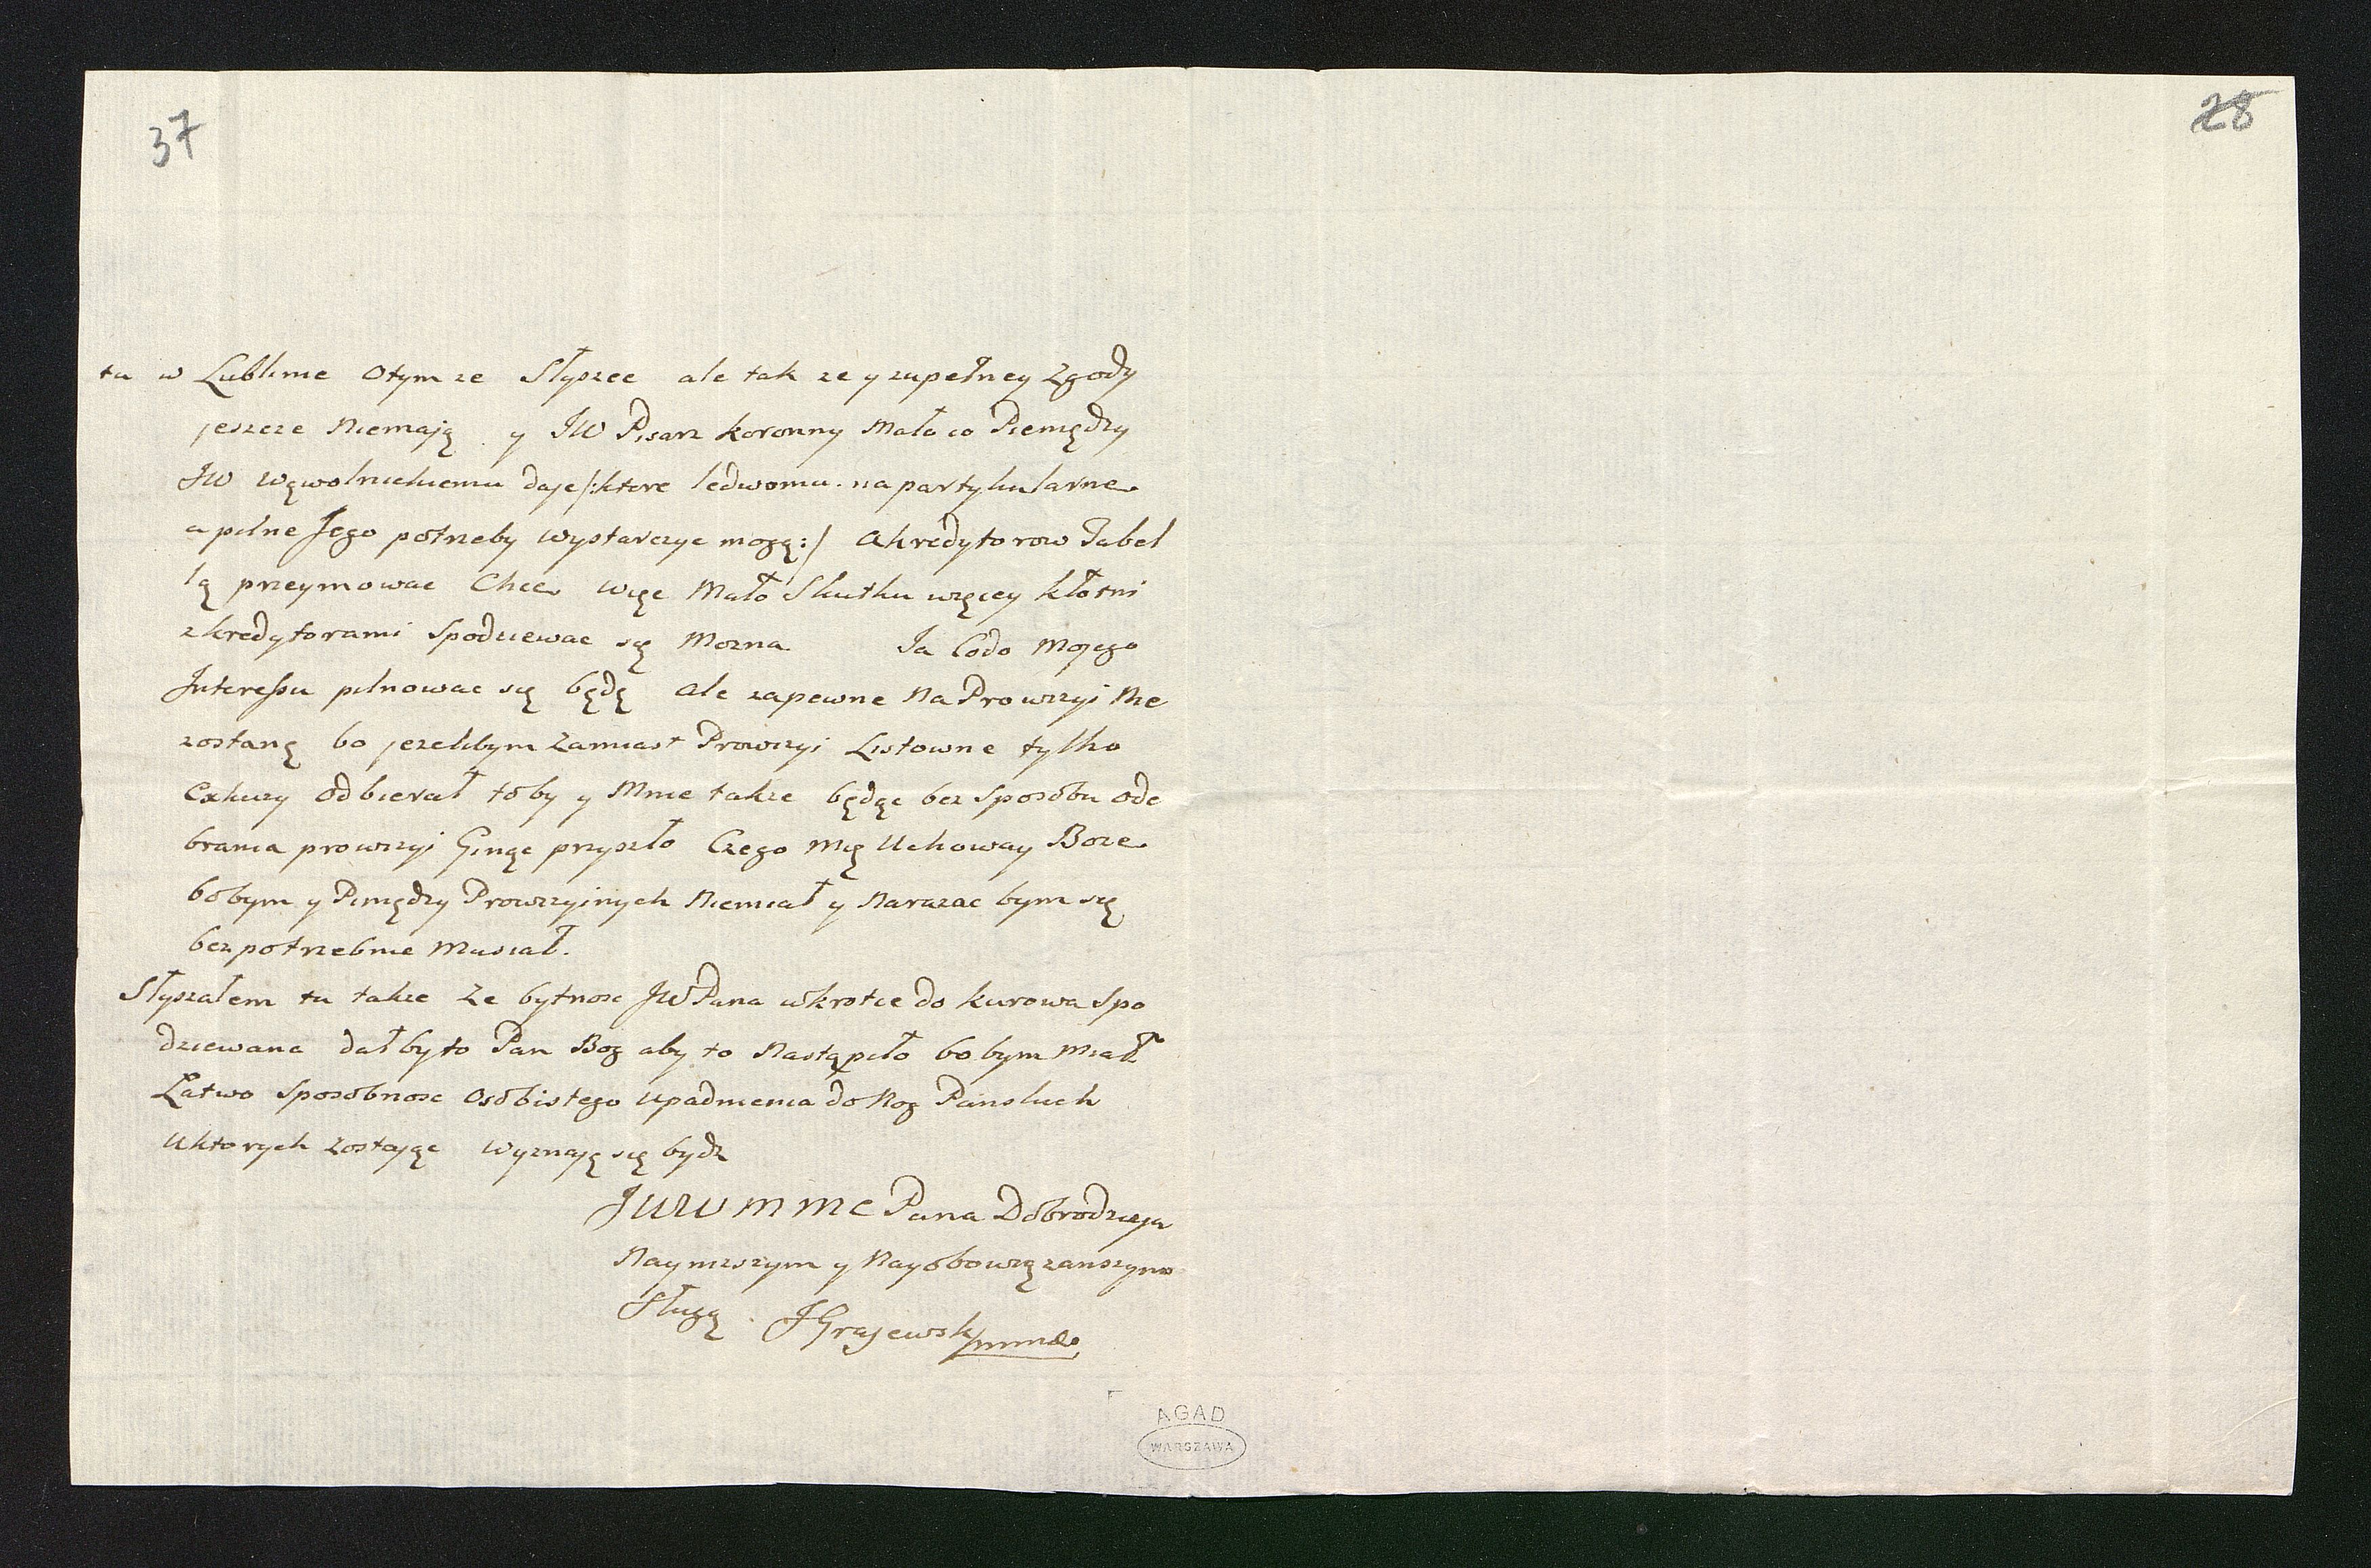 37
28
tu w Lublinie otym ze Słyszec ale tak ze y zupełney Zgody
jeszcze Niemają . y JW Pisarz koronny Mało co Pieniędzy
JW Węwolnickiemu daje /: ktore ledwomu . na partykularne
a pilne Jego potrzeby wystarczyc mogą :/ a kredytorow Tabel
lą przeymowac Chce więc Mało Skutku więcey kłotni
z kredytorami Spodziewac się Mozna Ja Codo Mojego
Interessu pilnowac się będę ale zapewne Na Prowizyi Nie
zostanę bo jezelibym Zamiast Prowizyi Listowne tylko
Exkuzy odbierał toby y Mnie takze będąc bez Sposobu ode
brania prowizyi Ginąc przyszło Czego Mię Uchoway Boze
bobym y Piniędzy Prowizyinych Niemiał y Narazac bym się
bezpotrzebnie Musiał.
Słyszałem tu takze Ze bytnosc JWPana wkrotce do kurowa Spo
dziewana dałbyto Pan Bog aby to Nastąpiło bobym Miał
Łatwo Sposobnosc Osobistego Upadnienia do Nog Panskich
Uktorych zostając wyznaję się bydz
JWW M M C Pana Dobrodzieja
Nayniszszym y Nayobowiązanszym
Sługą . JGrajewski mmda
AGAD
WARSZAWA